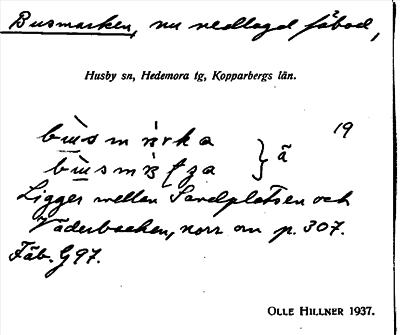 Busmarken, nu nedlagd fäbod,
Husby sn, Hedemora tg, Kopparbergs län.
19
} ã
Ligger mellan Sandplatsen och
Väderbacken, norr om p. 307.
Fäb. G97.
OLLE HILLNER 1937.